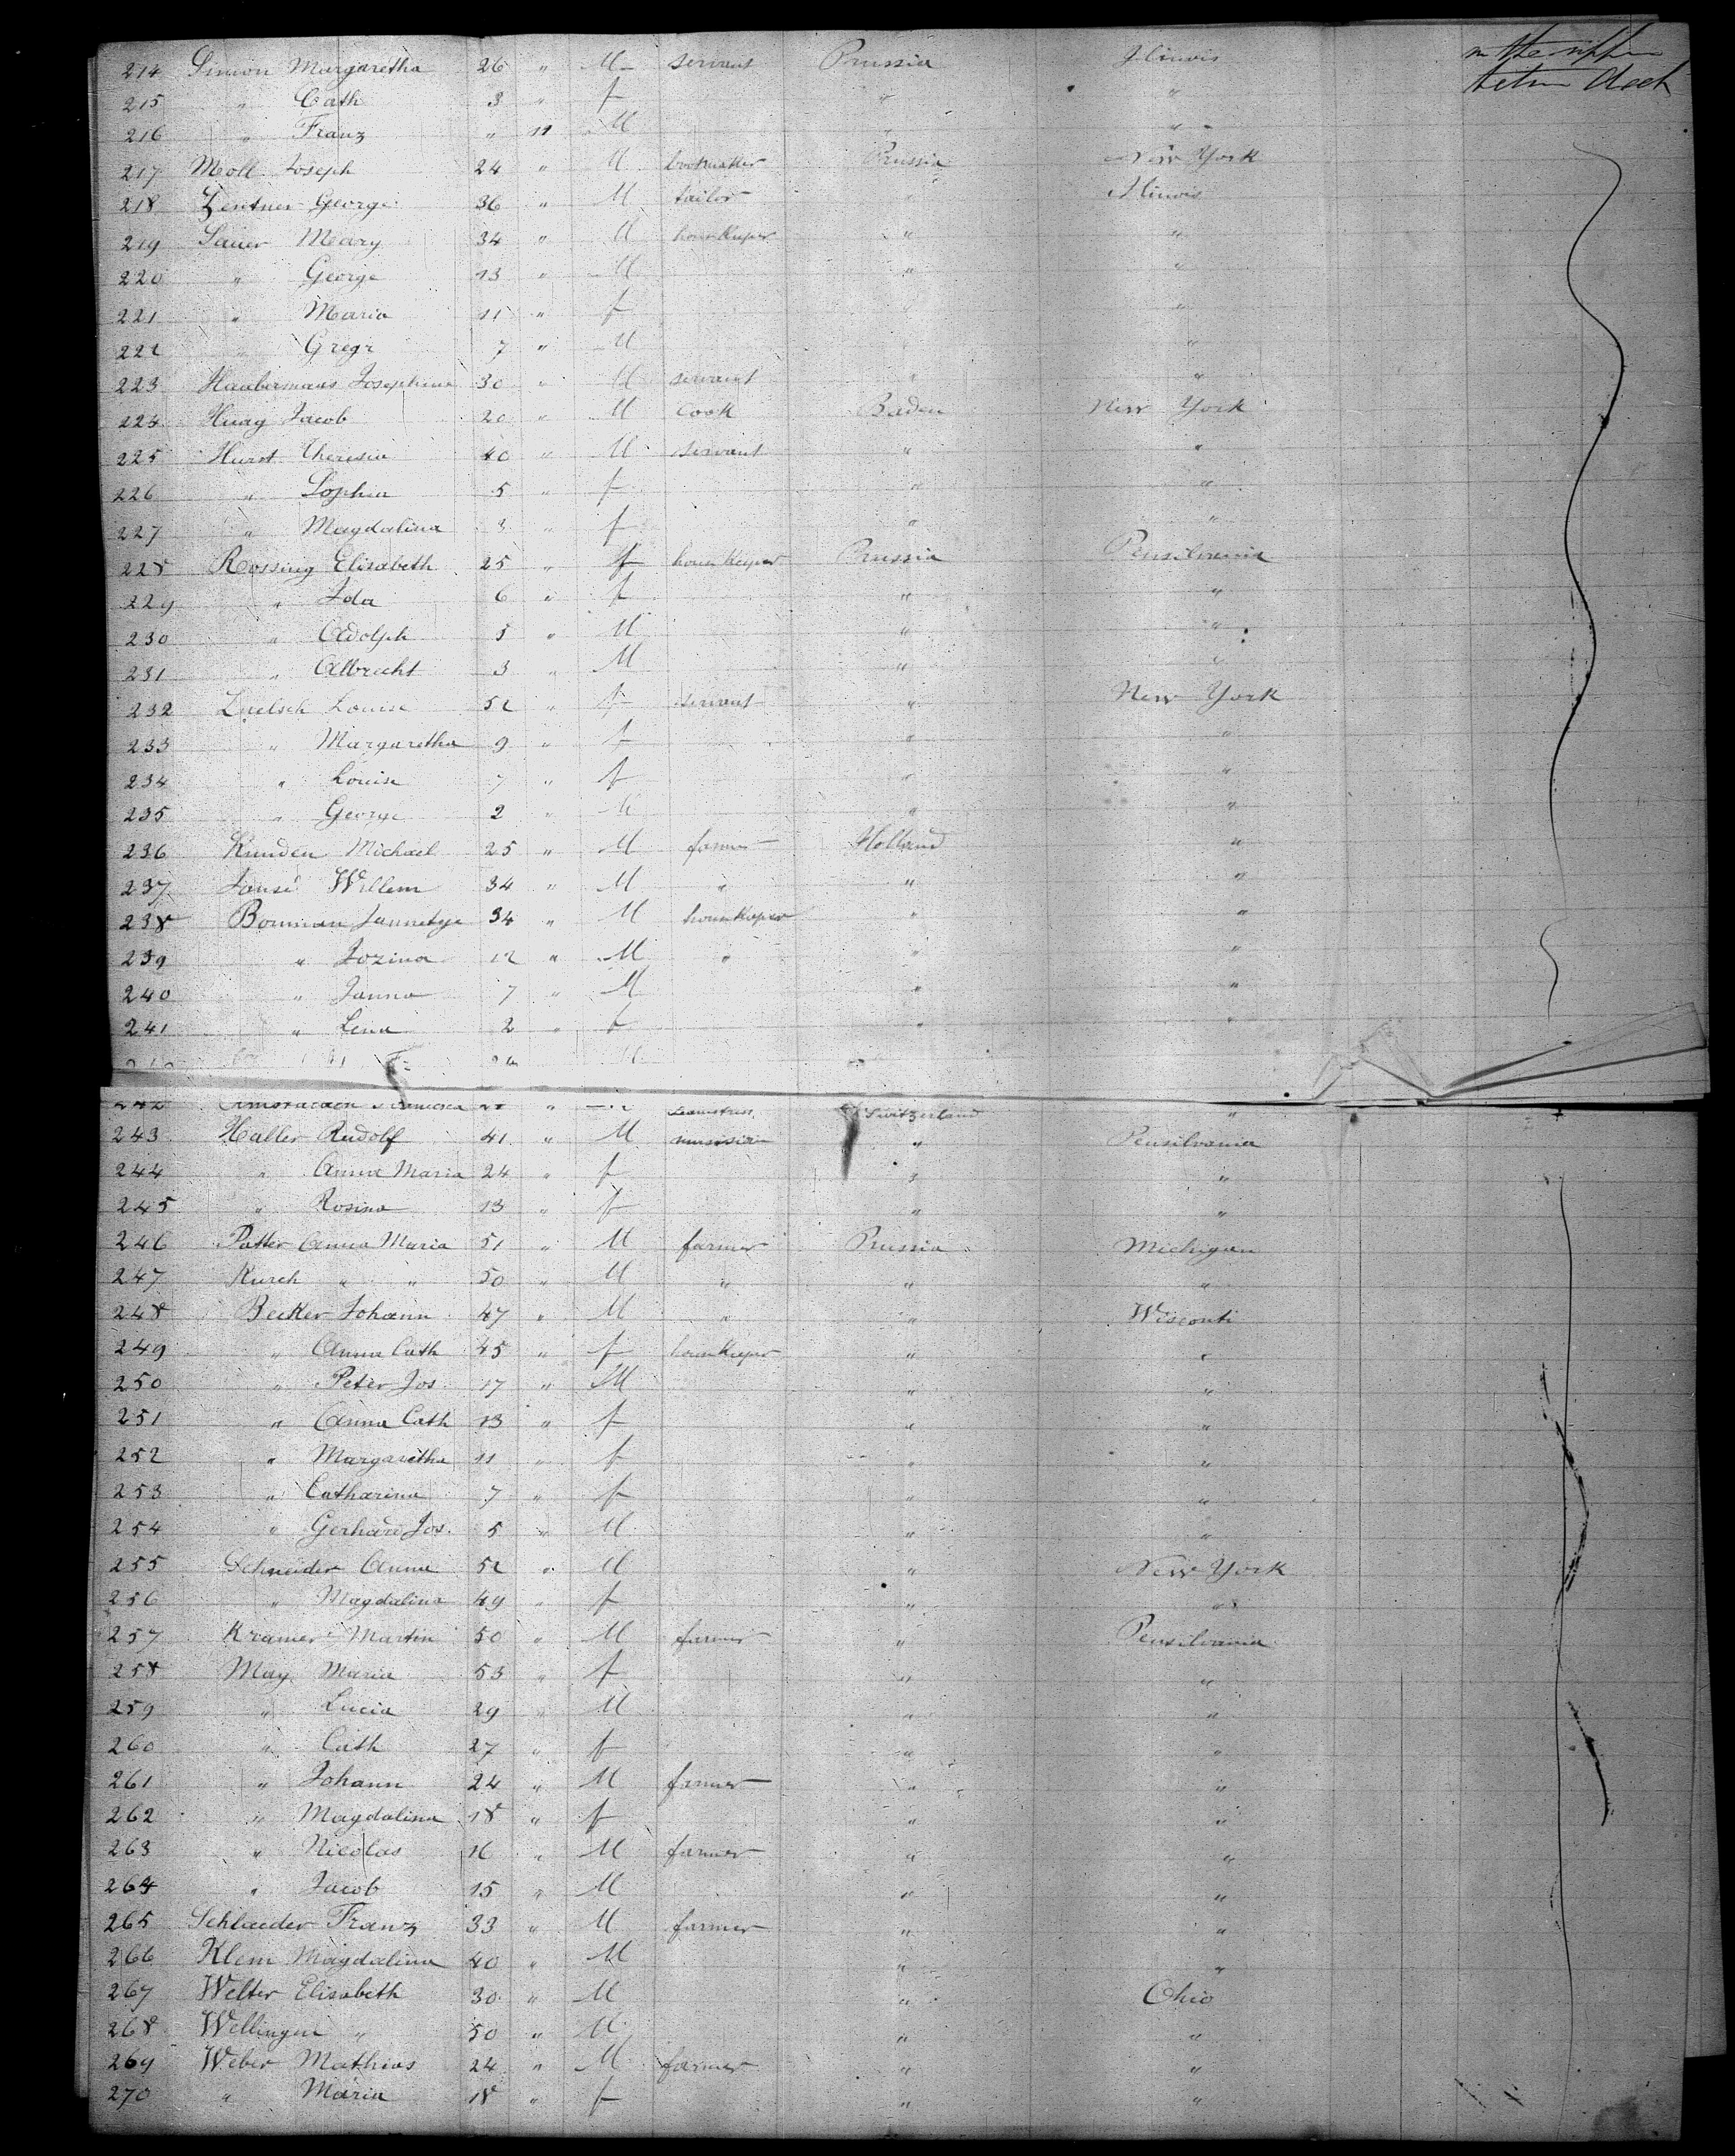 in the upper
betw Deck
214 Simon Margaretha 26 " M servant Prussia Illinois
215 " Cath 3 " f " "
216 " Franz " 11 M " "
217 Moll Joseph 24 " M Prussia New York
218 Zentner George 36 " M tailor " Illinois
219 Sauer Mary 34 " M housekeeper " "
220 " George 13 " M " "
221 " Maria 11 " f "
222 " Gregr 7 " M "
223 Haubermans Josephine 30 " M servant " "
224 Huag Jacob 20 " M Cook Baden New York
225 Hurst Theresia 40 " M servant " "
226 " Sophia 5 " f " "
227 " Magdalina 3 " f " "
228 Rossing Elisabeth 25 " f housekeeper Prussia Pensilvania
229 " Ida 6 " f " "
230 " Adolph 5 " M " "
231 " Albrecht 3 " M " "
232 Louise 52 " f servant " New York
233 " Margaretha 9 " f " "
234 " Louise 7 " f " "
235 " George 2 " M " "
236 Kunden Michael 25 " M farmer Holland "
237 Janse Willem 34 " M " " "
238 Bouman Jannetye 34 " M housekeeper " "
239 " Jozina 12 " M " " "
240 " Janna 7 " M " "
241 " Lena 2 " f " "
242 " seamstress Switzerland "
243 Haller Rudolf 41 " M " Pensilvania
244 " Anna Maria 24 " f " "
245 " Rosina 13 " f " "
246 Patter Anna Maria 51 " M farmer Prussia Michigan
247 Kurch " " 50 " M " " "
248 Becker Johann 47 " M " " Wisconti
249 " Anna Cath 45 " f housekeeper " "
250 " Peter Jos. 17 " M " "
251 " Anna Cath 13 " f " "
252 " Margaretha 11 " f " "
253 " Catharina 7 " f " "
254 " Gerhard Jos. 5 " M " "
255 Schneider Anna 52 " M " New York
256 " Magdalina 49 " f " "
257 Kramer Martin 50 " M farmer " Pensilvania
258 May Maria 53 " f " "
259 " Lucia 29 " M " "
260 " Cath 27 " f " "
261 " Johann 24 " M farmer " "
262 " Magdalina 18 " f " "
263 " Nicolas 16 " M farmer " "
264 " Jacob 15 " M " "
265 Schlaeder Franz 33 " M farmer " "
266 Klem Magdalina 40 " M " "
267 Welter Elisabeth 30 " M " Ohio
268 Wellingen " 50 " M " "
269 Weber Mathias 24 " M farmer " "
270 " Maria 18 " f " "